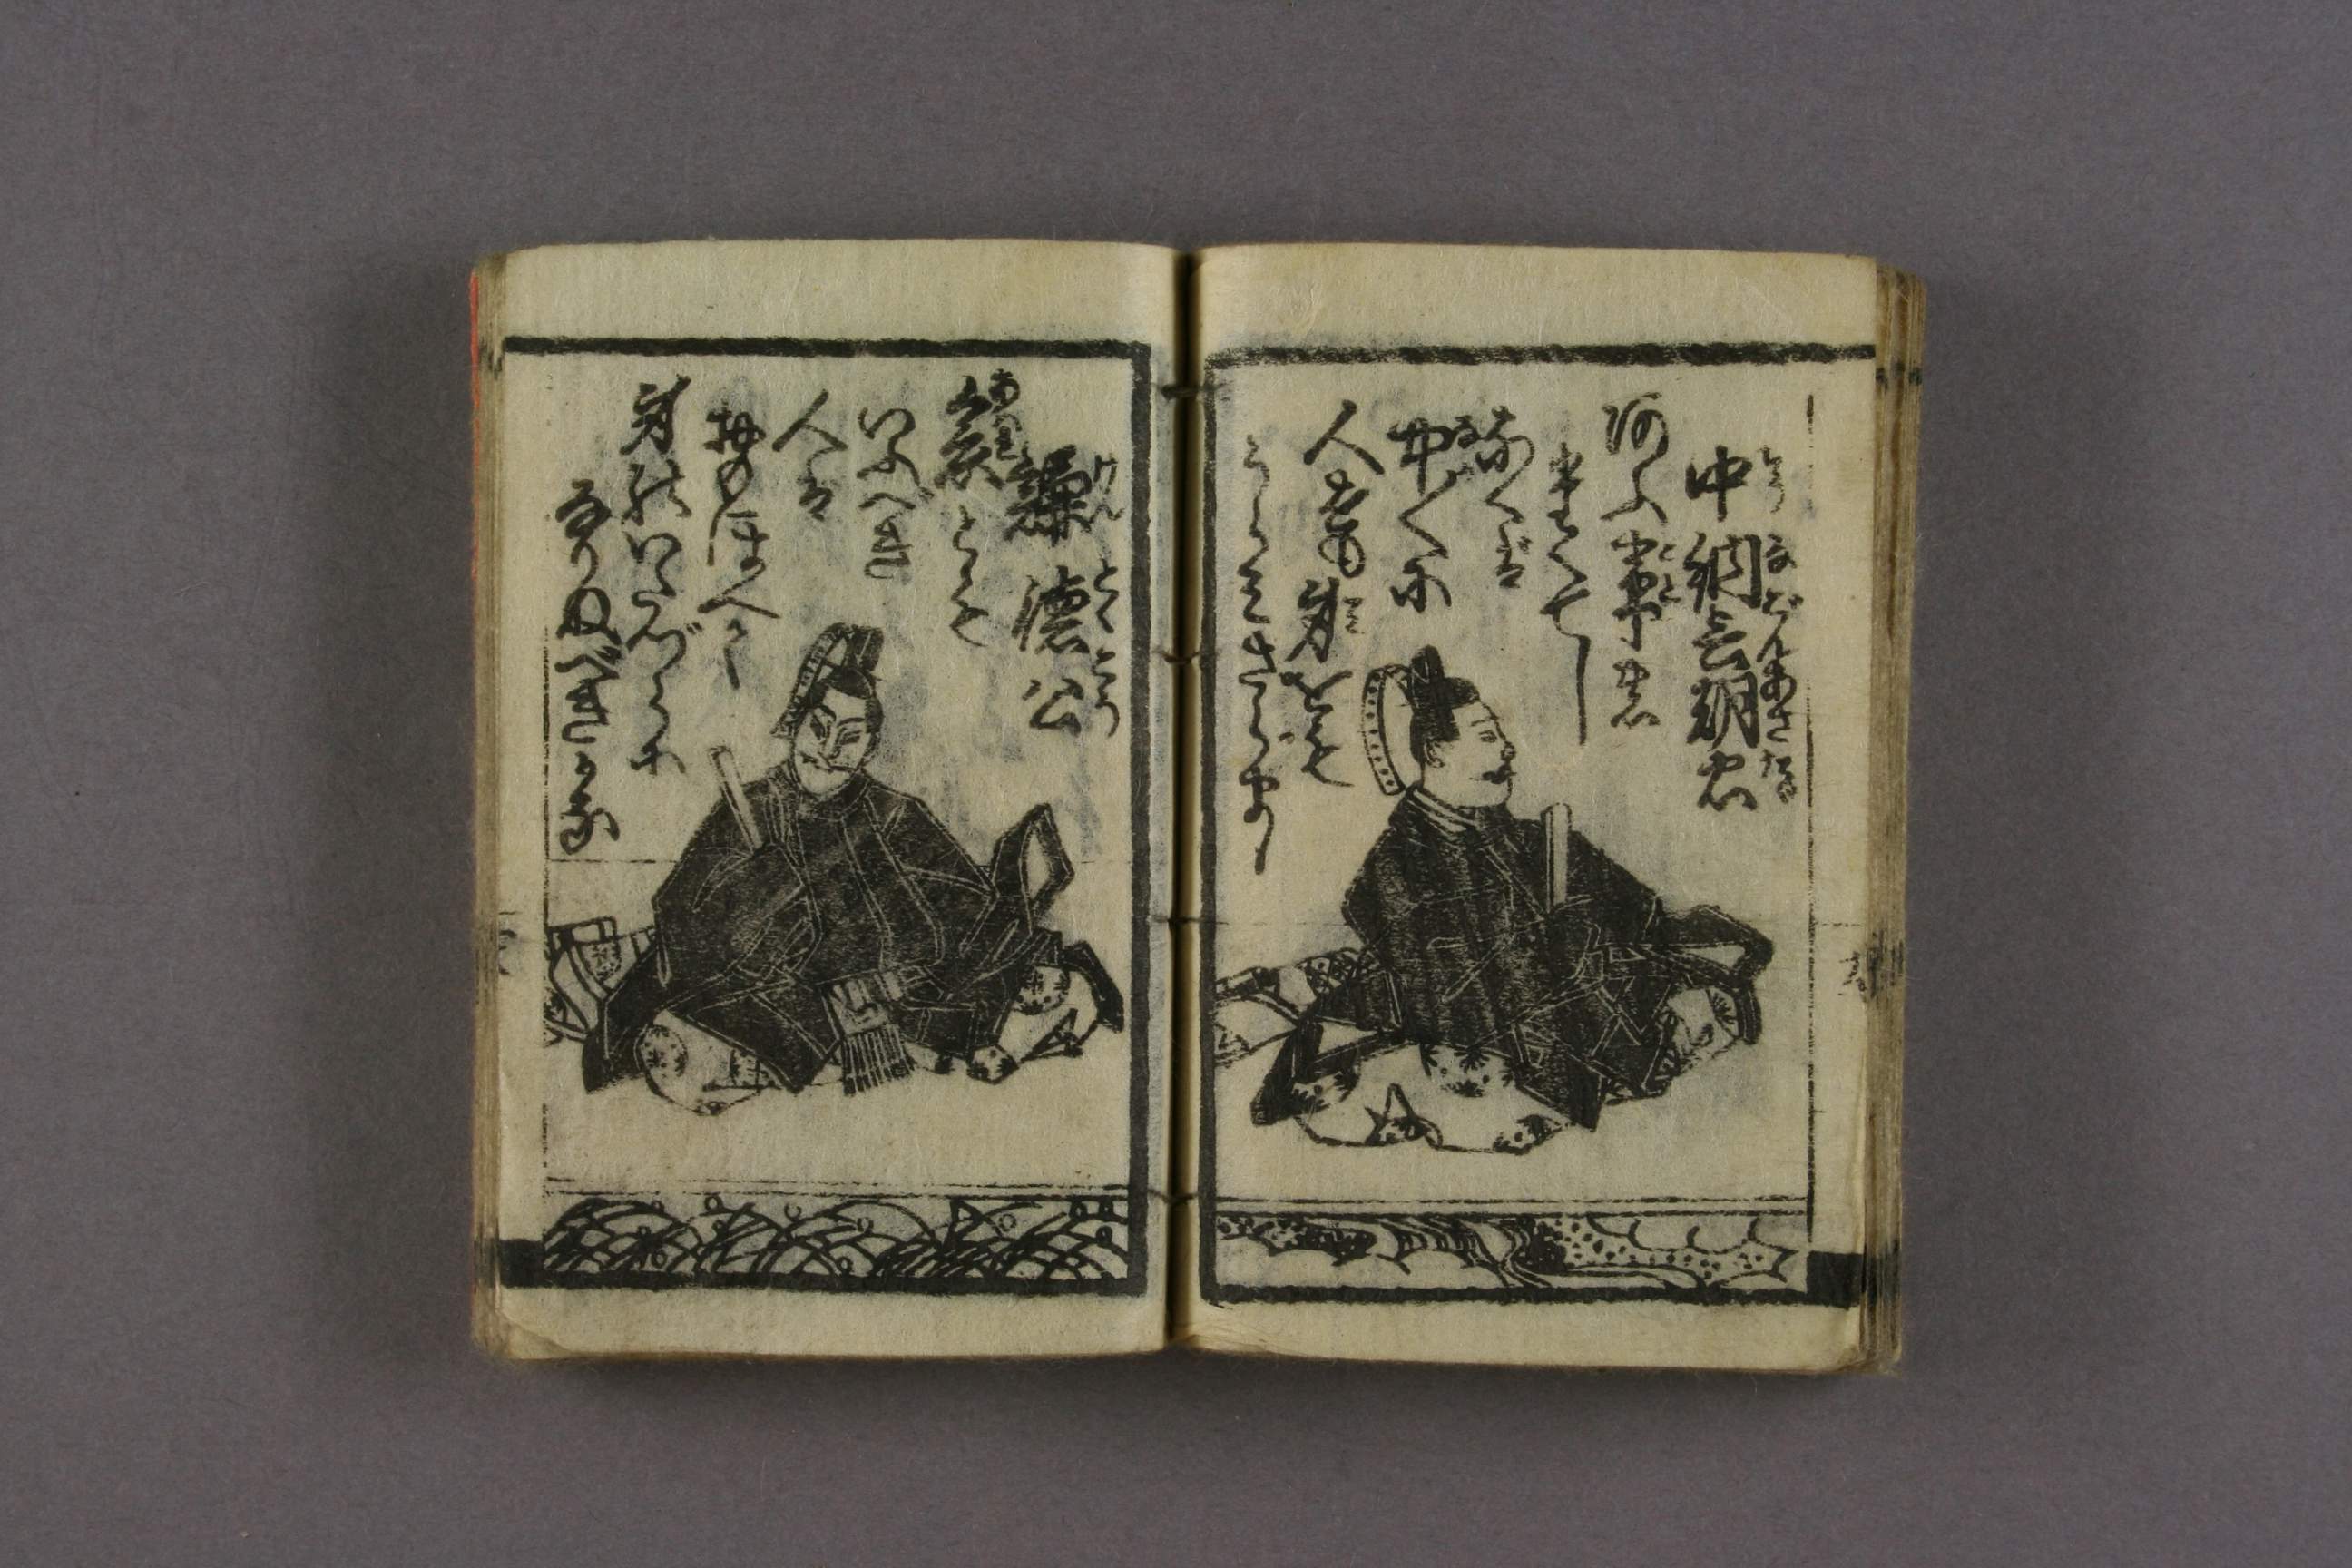 中納言朝忠
阿ふ事の
絶てし
なくば
中〳〵に
人をも身をも
うらみざらまし
謙徳公
哀とも
いふべき
人は
おもほへで
身のいたづらに
なりぬべきかな